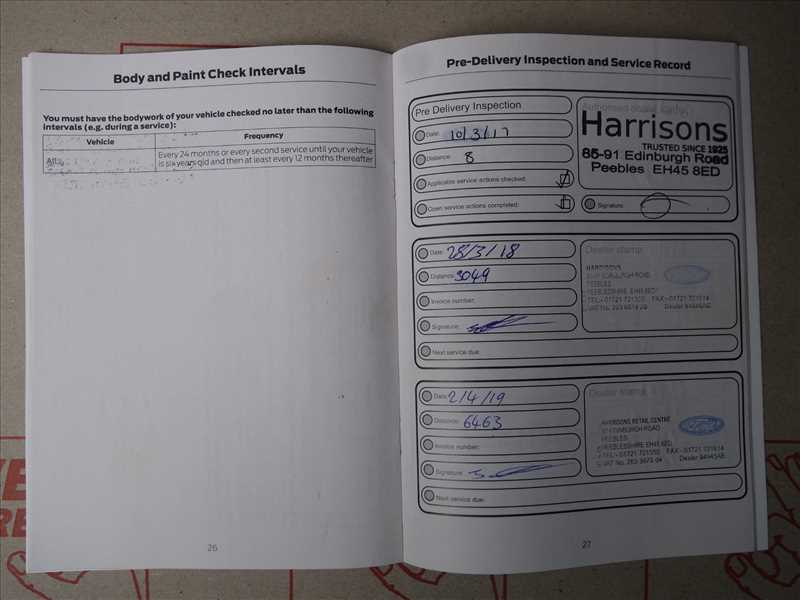 Body and Paint Check Intervals
You must have the bodywork of your vehicle checked no later than the following
intervals (e.g. during a service):
Vehicle Frequency
All Every 24 months or every second service until your vehicle
is six years old and then at least every 12 months thereafter
26
Pre-Delivery Inspection and Service Record
Pre Delivery Inspection
Date: 10/3/17
Distance: 8
Applicable service actions checked:
Open service actions completed:
Harrisons
TRUSTED SINCE 1925
85-91 Edinburgh Road
Peebles EH45 8ED
Signature:
Date: 28/3/18
Distance: 3049
Invoice number:
Signature:
Next service due:
Dealer stamp
HARRISONS
EDINBURGH ROAD
PEEBLES
PEEBLESSHIRE EH45 8ED
TEL:- 01721 721350 FAX:- 01721 721614
VAT No.
Date: 2/4/19
Distance: 6463
Invoice number:
Signature:
Next service due:
Dealer stamp
HARRISONS RETAIL CENTRE
EDINBURGH ROAD
PEEBLES
PEEBLESSHIRE EH45 8ED
TEL:- 01721 721350 FAX:- 01721 721614
VAT No.
Ford
27